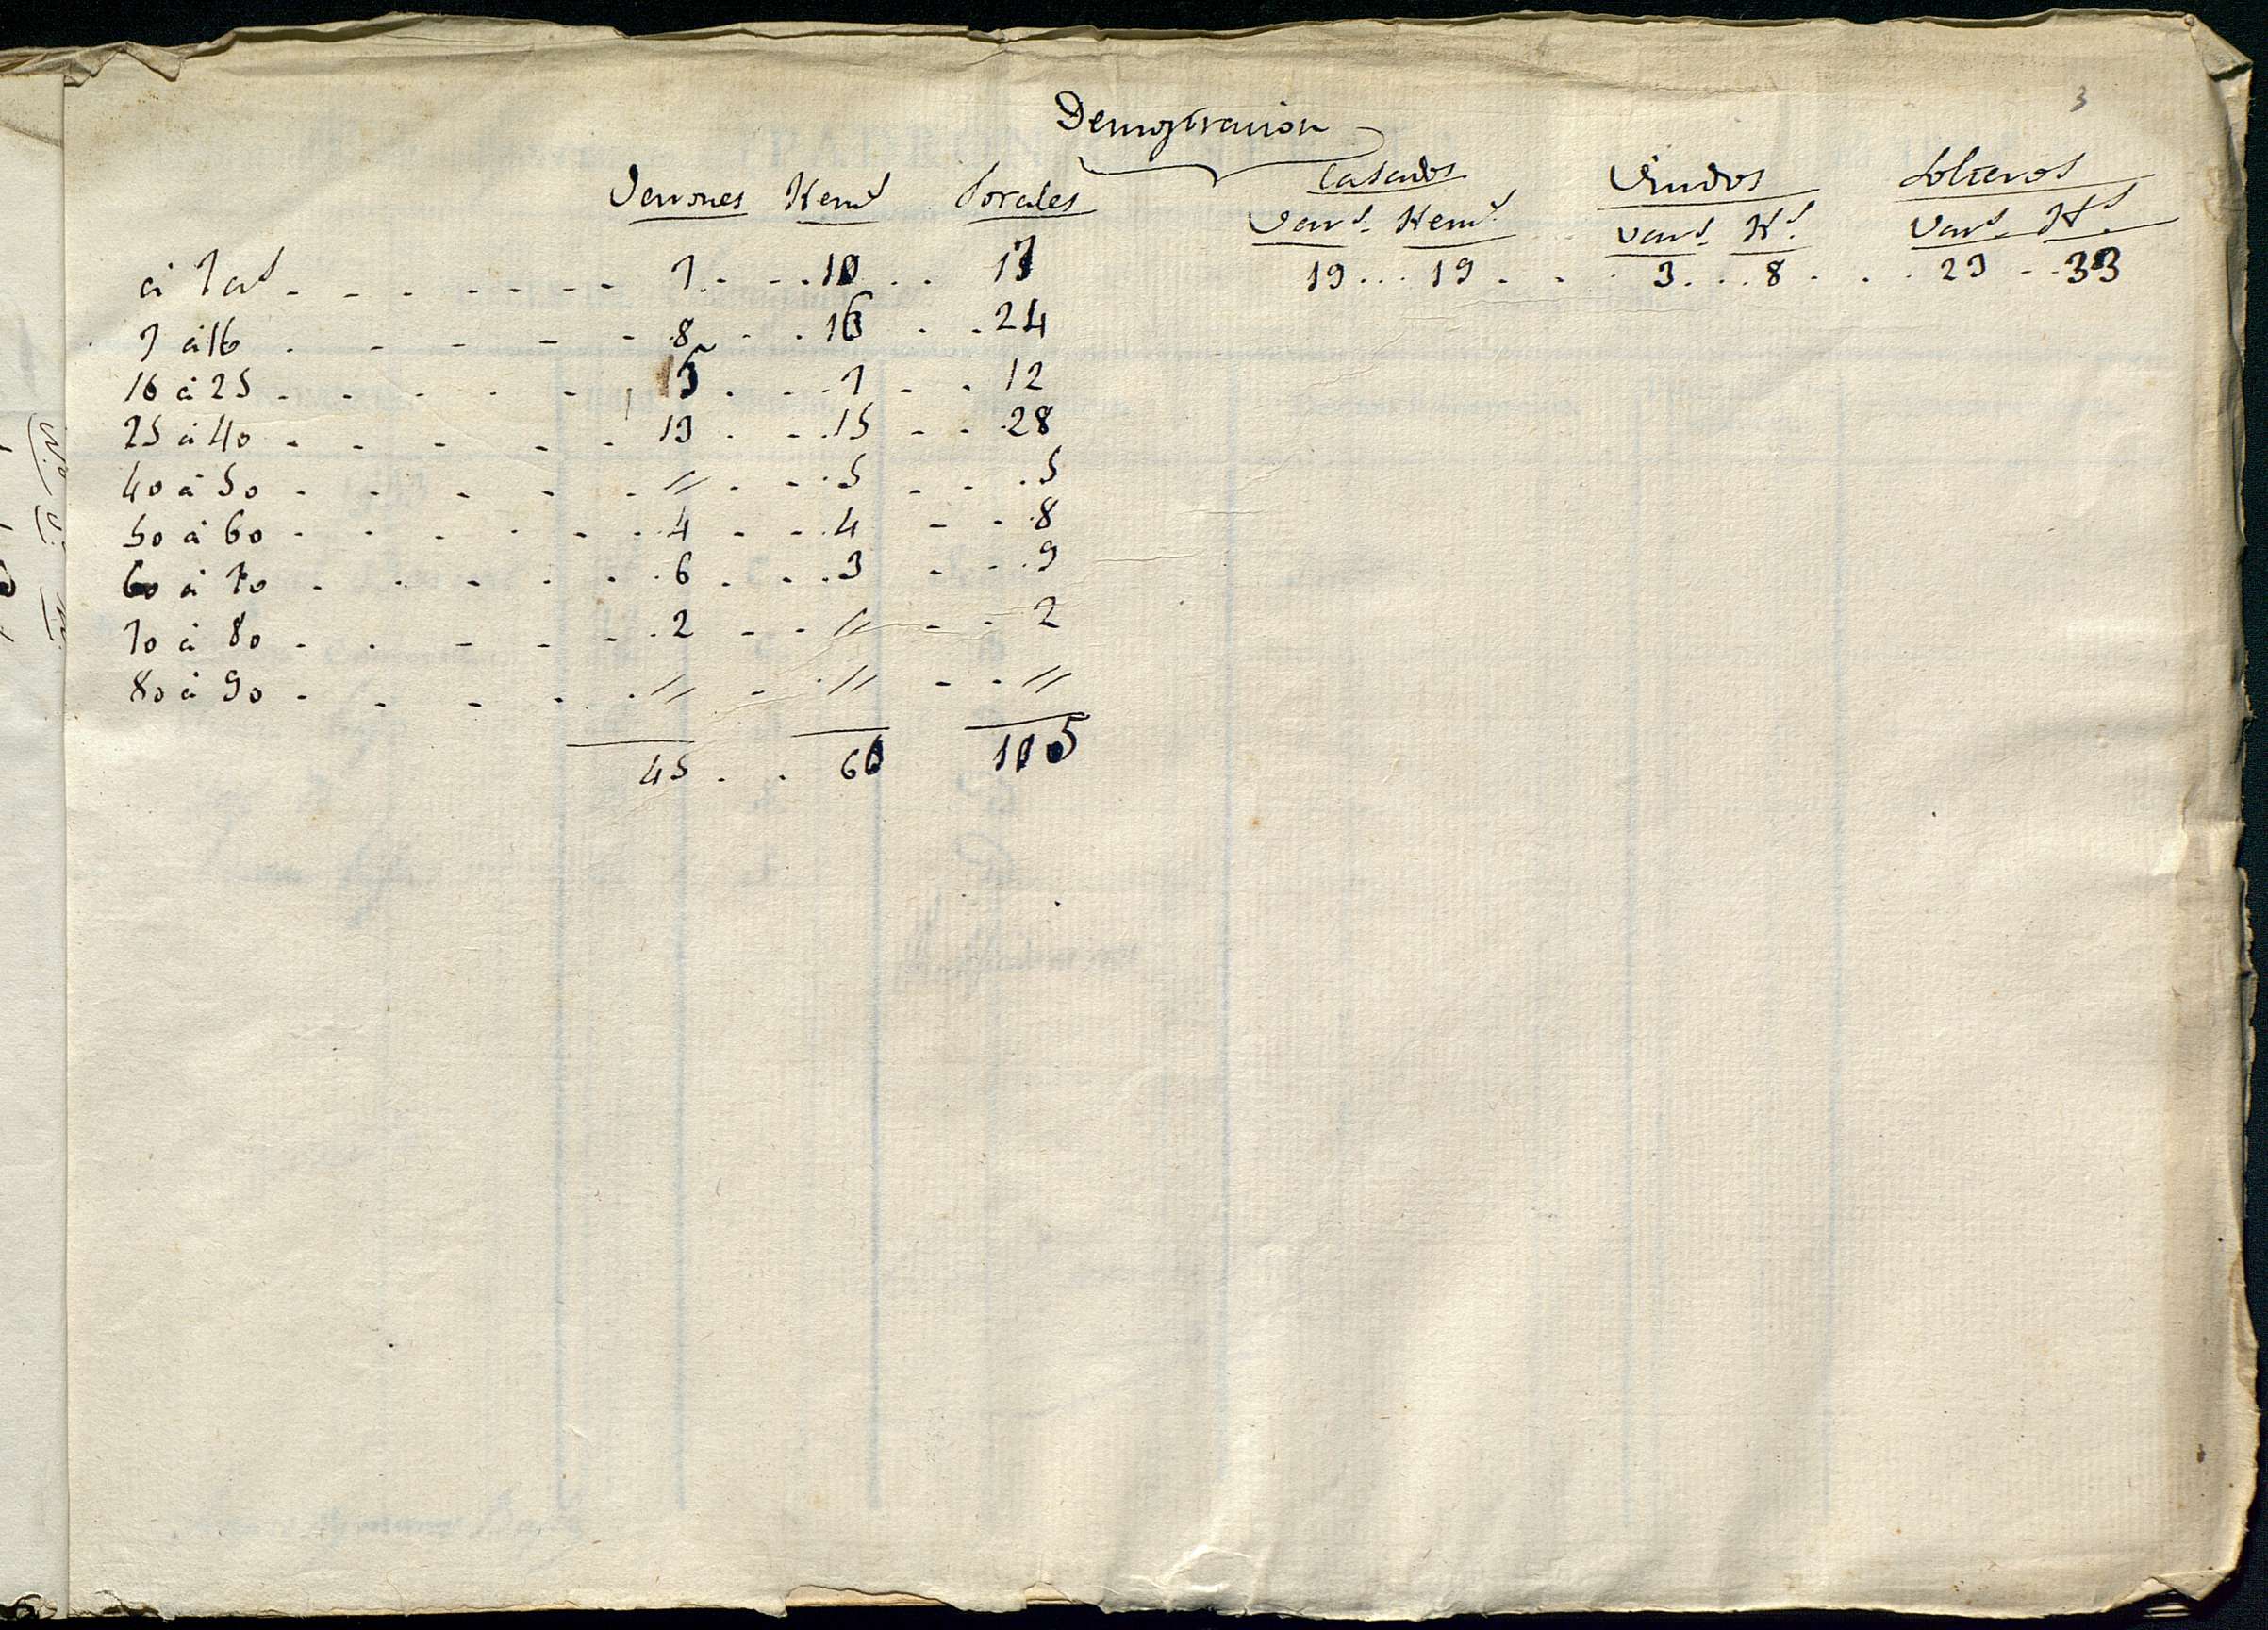 3
Demostracion
Varones Hemˢ Totales
Casados Viudos Solteros
Varˢ. Hemˢ. Varˢ. Hˢ. Varˢ. Hˢ.
á 7 aˢ 7 10 17
19 19 3 8 23 33
7 á 16 8 16 24
16 á 25 5 7 12
25 á 40 13 15 28
40 á 50 // 5 5
50 á 60 4 4 8
60 á 70 6 3 9
70 á 80 2 // 2
80 á 90 // // //
45 60 105